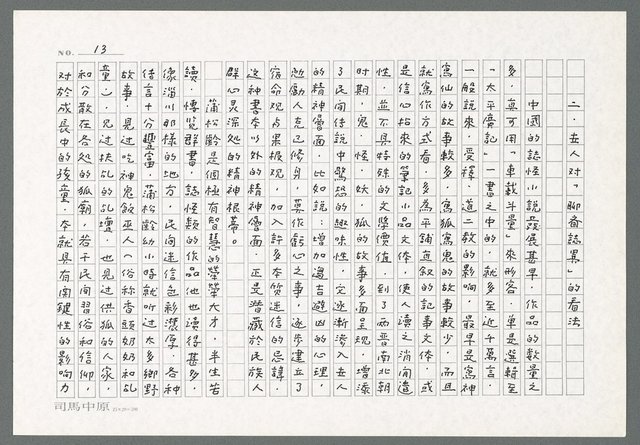 NO. 13
二、世人對「聊齋誌異」的看法
中國的誌怪小說發展甚早，作品的數量之
多，真可用「車載斗量」來形容，單是選輯至
「太平廣記」一書之中的，就多至近千萬言，
一般說來，受釋、道二教的影响，最早是寓神
寓仙的故事較多，寓狐寓鬼的故事較少，而且
就寓作方式看，多為平鋪直叙的記事文体，或
是信心拈來的筆記小品文体，使人讀之消閒遣
性，並不具特殊的文學價值，到了兩晋南北朝
时期，鬼、怪、妖、狐的故事多面呈現，增添
了民间传說中驚恐的趣味性，它逐漸滲入世人
的精神層面，比如說：增加趨吉避凶的心理，
勉勵人克己修身，莫作虧心之事，逐步建立了
宿命观点果報观，加入許多本質迷信的忌諱，
這神書本以外的精神層面，正是潛藏於民族人
群心灵深処的精神根蒂。
蒲松齡是個極有智慧的榮榮大才，半生苦
讀，博覧群書，誌類的作品他也讀得甚多，
像淄川那樣的地方，民间迷信色彩濃厚，各种
传言十分豐富，蒲松齡幼小時就听过太多鄉野
故事，見过吃神鬼飯巫人（俗称香頭奶奶和乩
童），見过扶乩的乩壇，也見过供狐的人家，
和分散在各処的狐廟，若干民间習俗和信仰，
对於成長中的孩童，本就具有関鍵性的影响力
司馬中原 25×20=500